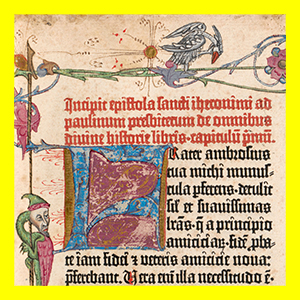 Incipit epistola sancti iheronimi ad
paulinum presbiterum de omnibus
divine historie libris. capitulum pmū.
FRater ambrosius
tua michi munus-
cula pferens. detulit
sil et suavissimas
lras. q̄ a principio
amiciciaꝝ. fidē pba-
te iam fidei et veteris amicicie nova:
pferebant. Vera eni illa necessitudo ē.